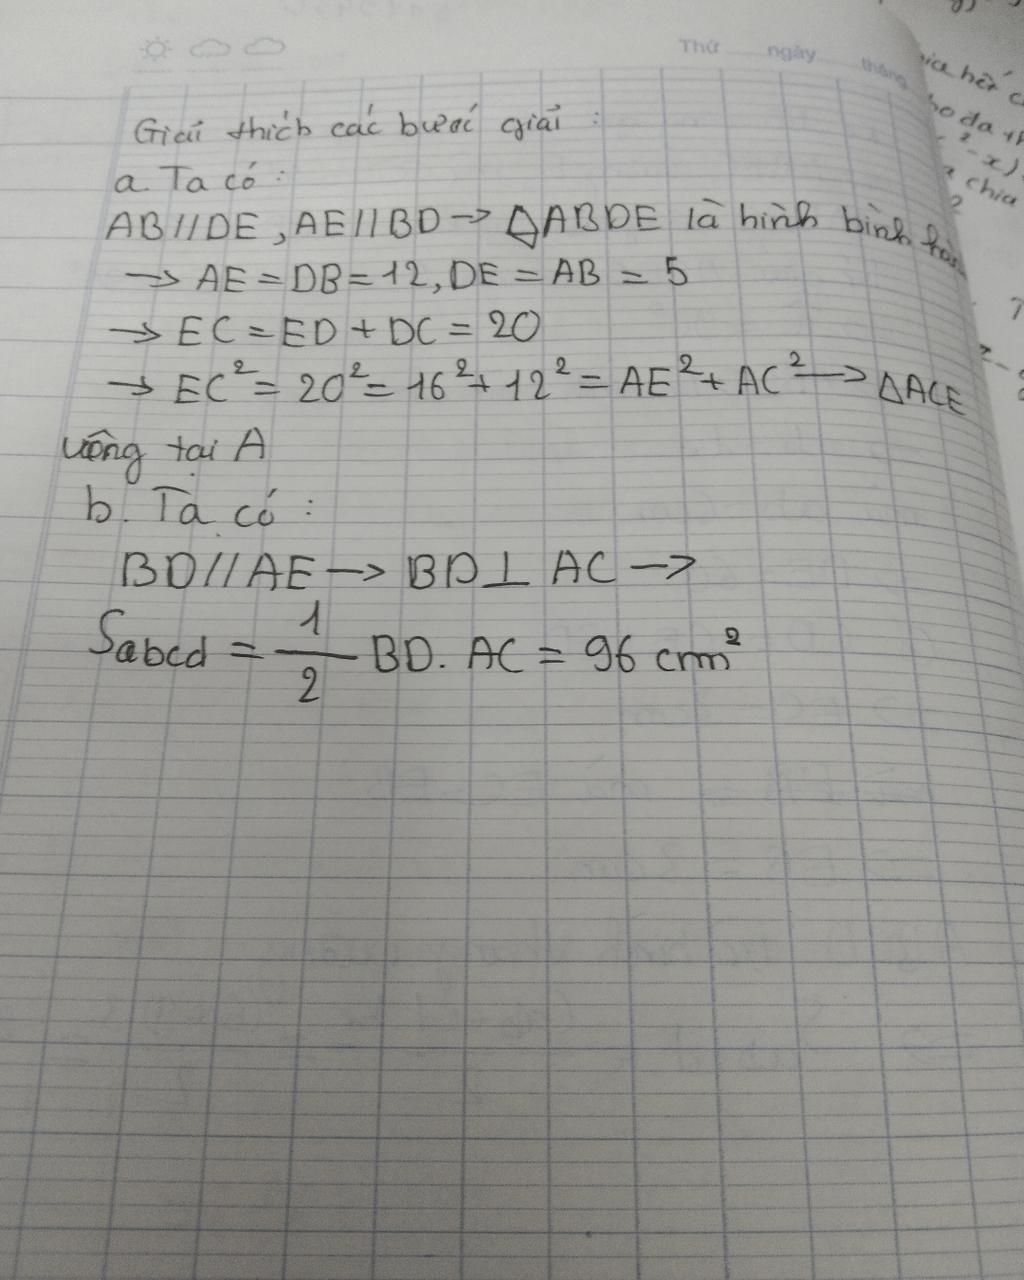 Thứ ngày tháng
Giải thích các bước giải :
a. Ta có :
AB//DE, AE//BD → △ABDE là hình bình hàn
→ AE = DB = 12, DE = AB = 5
→ EC = ED + DC = 20
→ EC² = 20² = 16² + 12² = AE² + AC² → △ACE
vuông tại A
b. Ta có :
BD//AE → BD ⊥ AC →
Sabcd = 1/2 BD. AC = 96 cm²
hết c
ho đa th
² - x)
chia
2